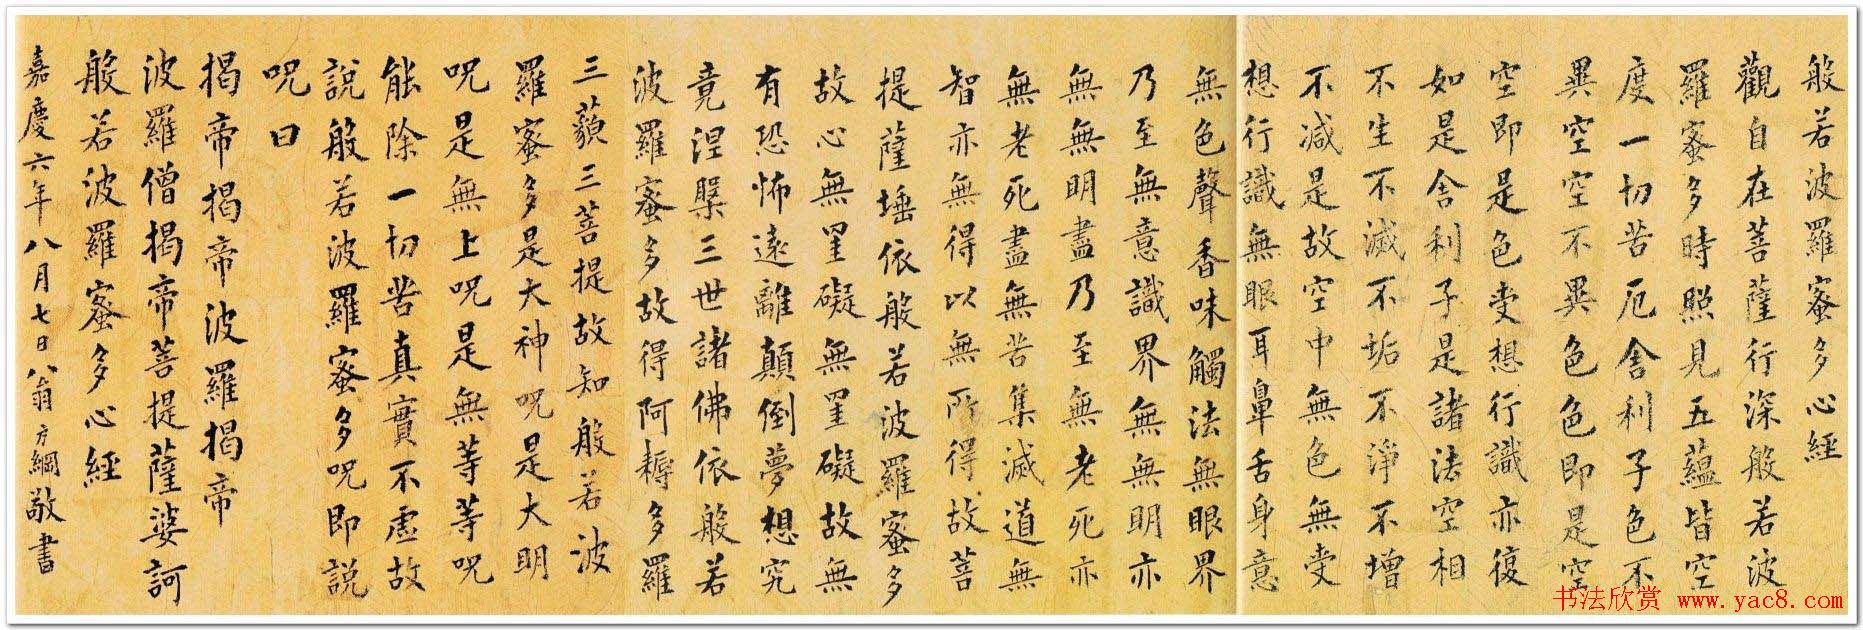 般若波羅蜜多心經
觀自在菩薩行深般若波
羅蜜多時照見五蘊皆空
度一切苦厄舍利子色不
異空空不異色色即是空
空即是色受想行識亦復
如是舍利子是諸法空相
不生不滅不垢不淨不增
不減是故空中無色無受
想行識無眼耳鼻舌身意
無色聲香味觸法無眼界
乃至無意識界無無明亦
無無明盡乃至無老死亦
無老死盡無苦集滅道無
智亦無得以無所得故菩
提薩埵依般若波羅蜜多
故心無罣礙無罣礙故無
有恐怖遠離顛倒夢想究
竟涅槃三世諸佛依般若
波羅蜜多故得阿耨多羅
三藐三菩提故知般若波
羅蜜多是大神咒是大明
咒是無上咒是無等等咒
能除一切苦真實不虛故
說般若波羅蜜多咒即說
咒曰
揭帝揭帝波羅揭帝
波羅僧揭帝菩提薩婆訶
般若波羅蜜多心經
嘉慶六年八月七日翁方綱敬書
书法欣赏 www.yac8.com